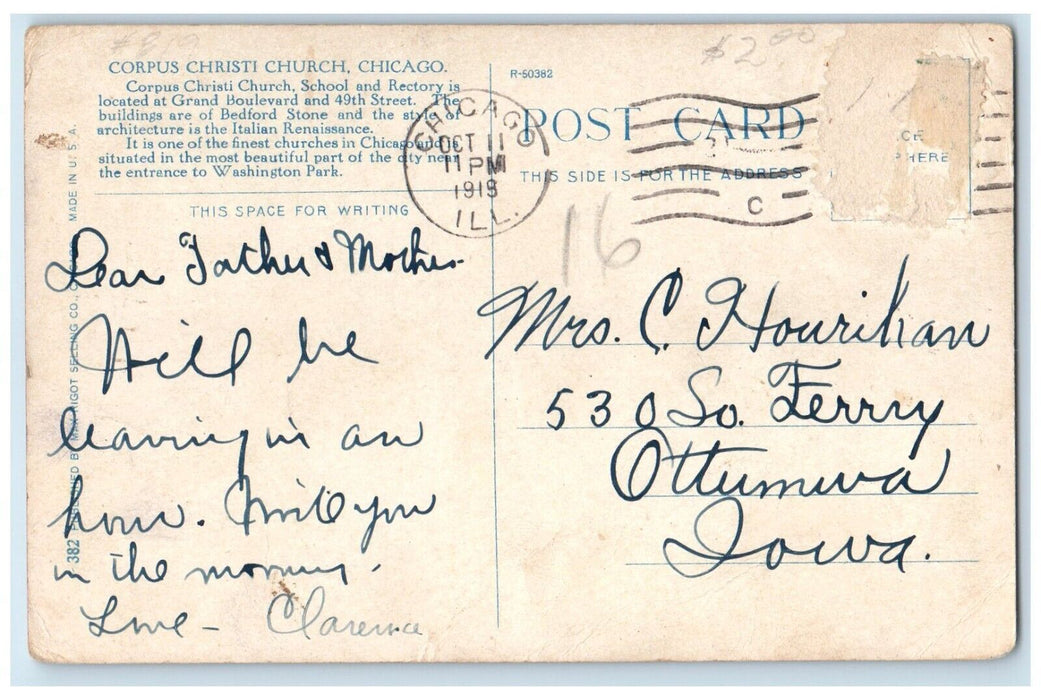 CORPUS CHRISTI CHURCH, CHICAGO.
Corpus Christi Church, School and Rectory is
located at Grand Boulevard and 49th Street. The
buildings are of Bedford Stone and the style of
architecture is the Italian Renaissance.
It is one of the finest churches in Chicago and is
situated in the most beautiful part of the city near
the entrance to Washington Park.
THIS SPACE FOR WRITING
Dear Father & Mother
Will be
leaving in an
hour. Write you
in the morning.
Love - Clarence
MADE IN U. S. A.
SELLING CO.,
382
R-50382
$2.00
POST CARD
THIS SIDE IS FOR THE ADDRESS
HERE
CHICAGO
OCT 11
11 PM
1918
ILL.
C
16
Mrs. C. Hourihan
530 So. Ferry
Ottumwa
Iowa.